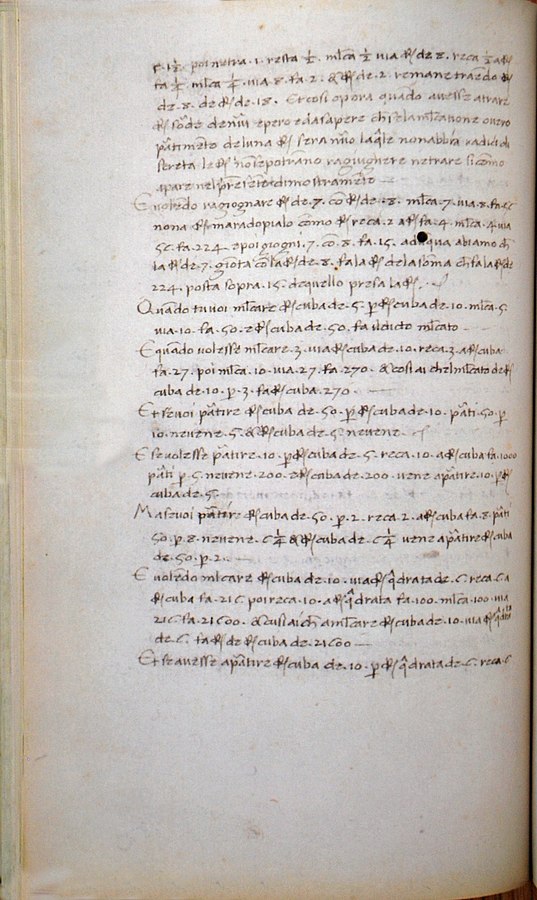 è .1½. poi netra .1. resta ½. mł̄ca ½ via R de 8. reca ½ a R
fa ¼. mł̄ca ¼. via .8. fa .2. & R de .2. remane traēdo R
de .8. de R de .18. Et cosi opora quādo avesse atrare
R sōde denuī epero e da sapere chi se la mł̄catione overo
p̄timēte de luna R sera nūo laq̄le non abb̄ra radici di
screta le R non se potrano ragiughere ne trare sicōmo
apare nel pr̄e dimostramēto —
E volēdo ragiognare R de .7. cō R de .8. mł̄ca .7. via .8. fa .56.
nona R maradopialo cōmo R reca .2. a R fa .4. mł̄ca .4. via
56. fa .224. e poi giogni .7. cō .8. fa .15. adūqua abiamo ch̄
la R de .7. giōta cō la R de .8. fa la R de la sōma ch̄ fa la R de
224. posta sopra .15. de quello presa la R
Quādo tu voi mł̄care R cuba de .5. p R cuba de .10. mł̄ca .5.
via .10. fa .50. e R cuba de .50. fa il dicto mł̄cato
E quādo volesse mł̄care .3. via R cuba de .10. reca .3. a R cuba
fa .27. poi mł̄ca .10. via .27. fa .270. & cosi ai che l mł̄cato de R
cuba de .10. p .3. fa R cuba .270 —
Et se voi p̄tire R cuba de .50. p R cuba de .10. p̄ti .50. p
10. ne vene .5. & R cuba de .5. ne vene
E se volesse p̄tire .10. p R cuba de .5. reca .10. a R cuba fa .1000
p̄ti p .5. ne vene .200. e R cuba de .200. vene a p̄tire .10. p R
cuba de .5.
Ma se voi p̄tire R cuba de .50. p .2. reca .2. a R cuba fa .8. p̄ti
50. p .8. ne vene .6¼ & R cuba de .6¼ vene a p̄tire R cuba
de .50. p .2. —
E volēdo mł̄care R cuba de .10. via R q̄drata de .6. reca .6. a
R cuba fa .216. poi reca .10. a R q̄drata fa .100. mł̄ca .100. via
216. fa .21600. & cusi ai ch̄ a mł̄care R cuba de .10. via R q̄drata
de .6. fa R de R cuba de .21600 —
Et se avesse a p̄tire R cuba de .10. p R q̄drata de .6. reca .6